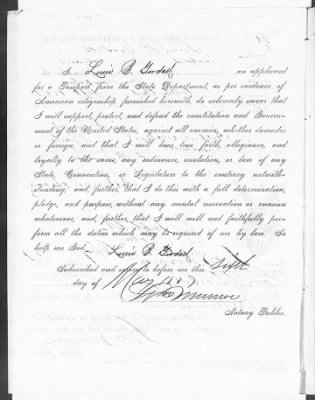 I, Lucie B. an applicant
for a Passport from the State Department, as per evidence of
American citizenship furnished herewith, do solemnly swear that
I will support, protect, and defend the constitution and Govern-
ment of the United States, against all enemies, whether domestic
or foreign, and that I will bear true faith, allegiance, and
loyalty to the same, any ordinance, resolution, or law of any
State, Convention, or Legislature to the contrary notwith-
standing, and further, that I do this with a full determination,
pledge, and purpose, without any mental reservation or evasion
whatsoever, and, further, that I will well and faithfully per-
form all the duties which may be required of me by law. So
help me God,
B.
Subscribed and sworn to before me this
day of May
Munroe
Notary Public.